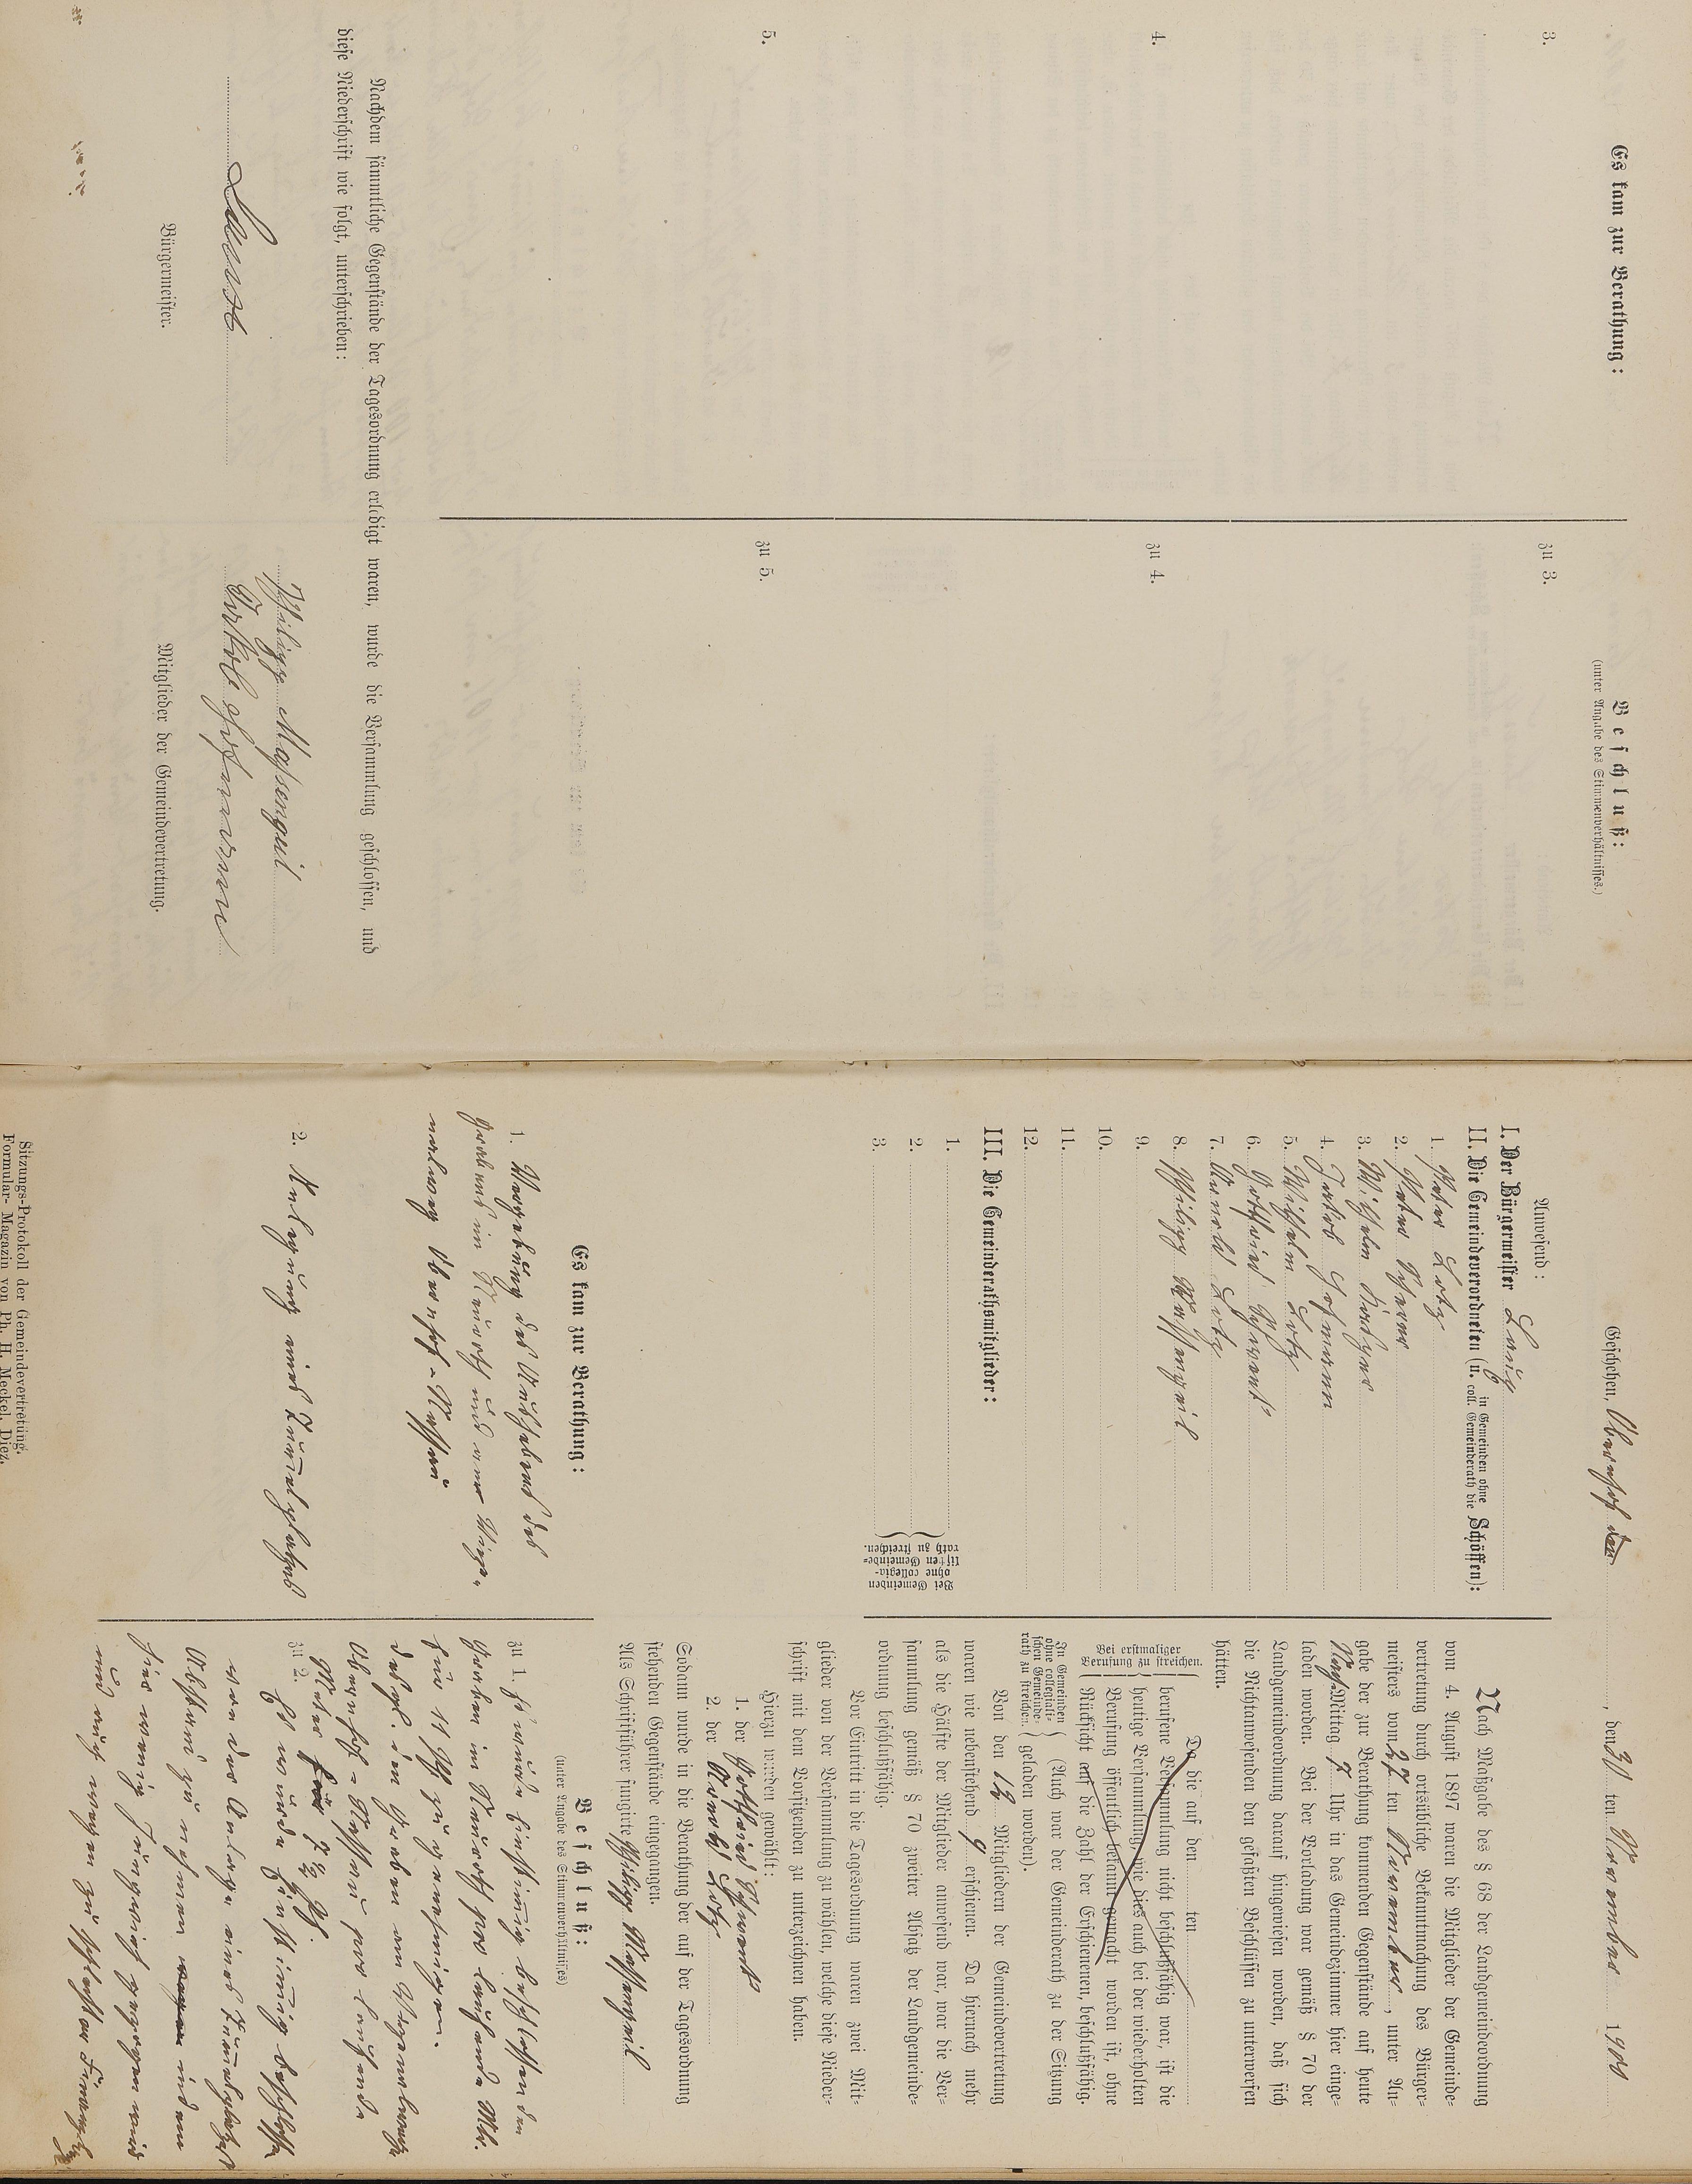 Es kam zur Berathung:
Beschluß:
(unter Angabe des Stimmenverhältnisses.)
3.
zu 3.
4.
zu 4.
5.
zu 5.
Nachdem sämmtliche Gegenstände der Tagesordnung erledigt waren, wurde die Versammlung geschlossen, und
diese Niederschrift wie folgt, unterschrieben:
Philipp Massengeil
Jakob Hofmann
Bürgermeister.
Mitglieder der Gemeindevertretung.
Geschehen, Obernhof den, den 30 ten November 1900
Anwesend:
I. Der Bürgermeister
II. Die Gemeindeverordneten (u. in Gemeinden ohne coll. Gemeinderath die Schöffen):
1. Peter Lotz
2. Peter
3. Wilhelm
4. Jakob Hofmann
5. Wilhelm Lotz
6. Gottfried Schwenk
7. Arnold Lotz
8. Philipp Massengeil
9.
10.
11.
12.
III. Die Gemeinderathsmitglieder:
1.
2.
3.
Bei Gemeinden
ohne collegia-
lischen Gemeinde-
rath zu streichen.
Nach Maßgabe des § 68 der Landgemeindeordnung
vom 4. August 1897 waren die Mitglieder der Gemeinde-
vertretung durch ortsübliche Bekanntmachung des Bürger-
meisters vom 27 ten November, unter An-
gabe der zur Berathung kommenden Gegenstände auf heute
Nach Mittag 7 Uhr in das Gemeindezimmer hier einge-
laden worden. Bei der Vorladung war gemäß § 70 der
Landgemeindeordnung darauf hingewiesen worden, daß sich
die Nichtanwesenden den gefaßten Beschlüssen zu unterwerfen
hätten.
Bei erstmaliger
Berufung zu streichen.
Da die auf den ten
berufene Versammlung nicht beschlußfähig war, ist die
heutige Versammlung, wie dies auch bei der wiederholten
Berufung öffentlich bekannt gemacht worden ist, ohne
Rücksicht auf die Zahl der Erschienenen, beschlußfähig.
In Gemeinden
ohne collegiali-
schen Gemeinde-
rath zu streichen.
(Auch war der Gemeinderath zu der Sitzung
geladen worden).
Von den 12 Mitgliedern der Gemeindevertretung
waren wie nebenstehend 9 erschienen. Da hiernach mehr
als die Hälfte der Mitglieder anwesend war, war die Ver-
sammlung gemäß § 70 zweiter Absatz der Landgemeinde-
ordnung beschlußfähig.
Vor Eintritt in die Tagesordnung waren zwei Mit-
glieder von der Versammlung zu wählen, welche diese Nieder-
schrift mit dem Vorsitzenden zu unterzeichnen haben.
Hierzu wurden gewählt:
1. der Gottfried Schwenk
2. der Arnold Lotz
Sodann wurde in die Berathung der auf der Tagesordnung
stehenden Gegenstände eingegangen.
Als Schriftführer fungirte Philipp Massengeil
Es kam zur Berathung:
Beschluß:
(unter Angabe des Stimmenverhältnisses)
1. Vergebung des Aushebens des
Grabens im und am Vizi-
nalweg Obernhof-Nassau
2. Anlegung eines
zu 1. Es wurde Einstimmig beschlossen den
Graben im pro laufende Mtr.
für 11 Pf zu genehmigen.
desgl. im Graben am Vizinalweg
Obernhof-Nassau pro laufende
Meter für 7 1/2 Pf.
zu 2. Es wurde Einstimmig beschlossen
von der Anlage eines
Abstand zu nehmen indem
hier wenig gezogen wird
und auch wegen zu
Sitzungs-Protokoll der Gemeindevertretung.
Formular-Magazin von Ph. H. Meckel, Diez.